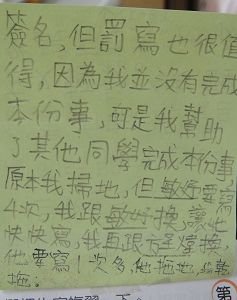 簽名,但罰寫也很值
得,因為我並沒有完成
本份事,可是我幫助
了其他同學完成本份事,
原本我掃地,但敏妤要寫
4次,我跟敏妤換,讓她
快快寫,我再跟煒換,
他要寫1次多,他拖地,我乾
拖。
第